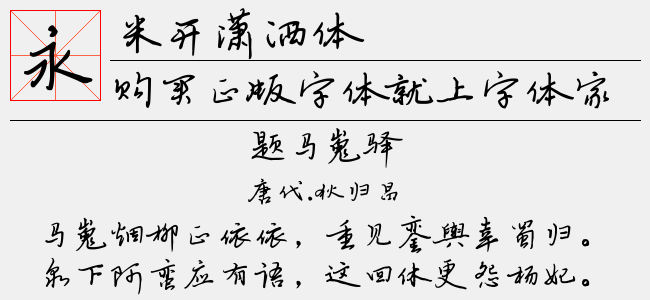 永
米开潇洒体
购买正版字体就上字体家
题马嵬驿
唐代.狄归昌
马嵬烟柳正依依，重见銮舆幸蜀归。
泉下阿蛮应有语，这回休更怨杨妃。